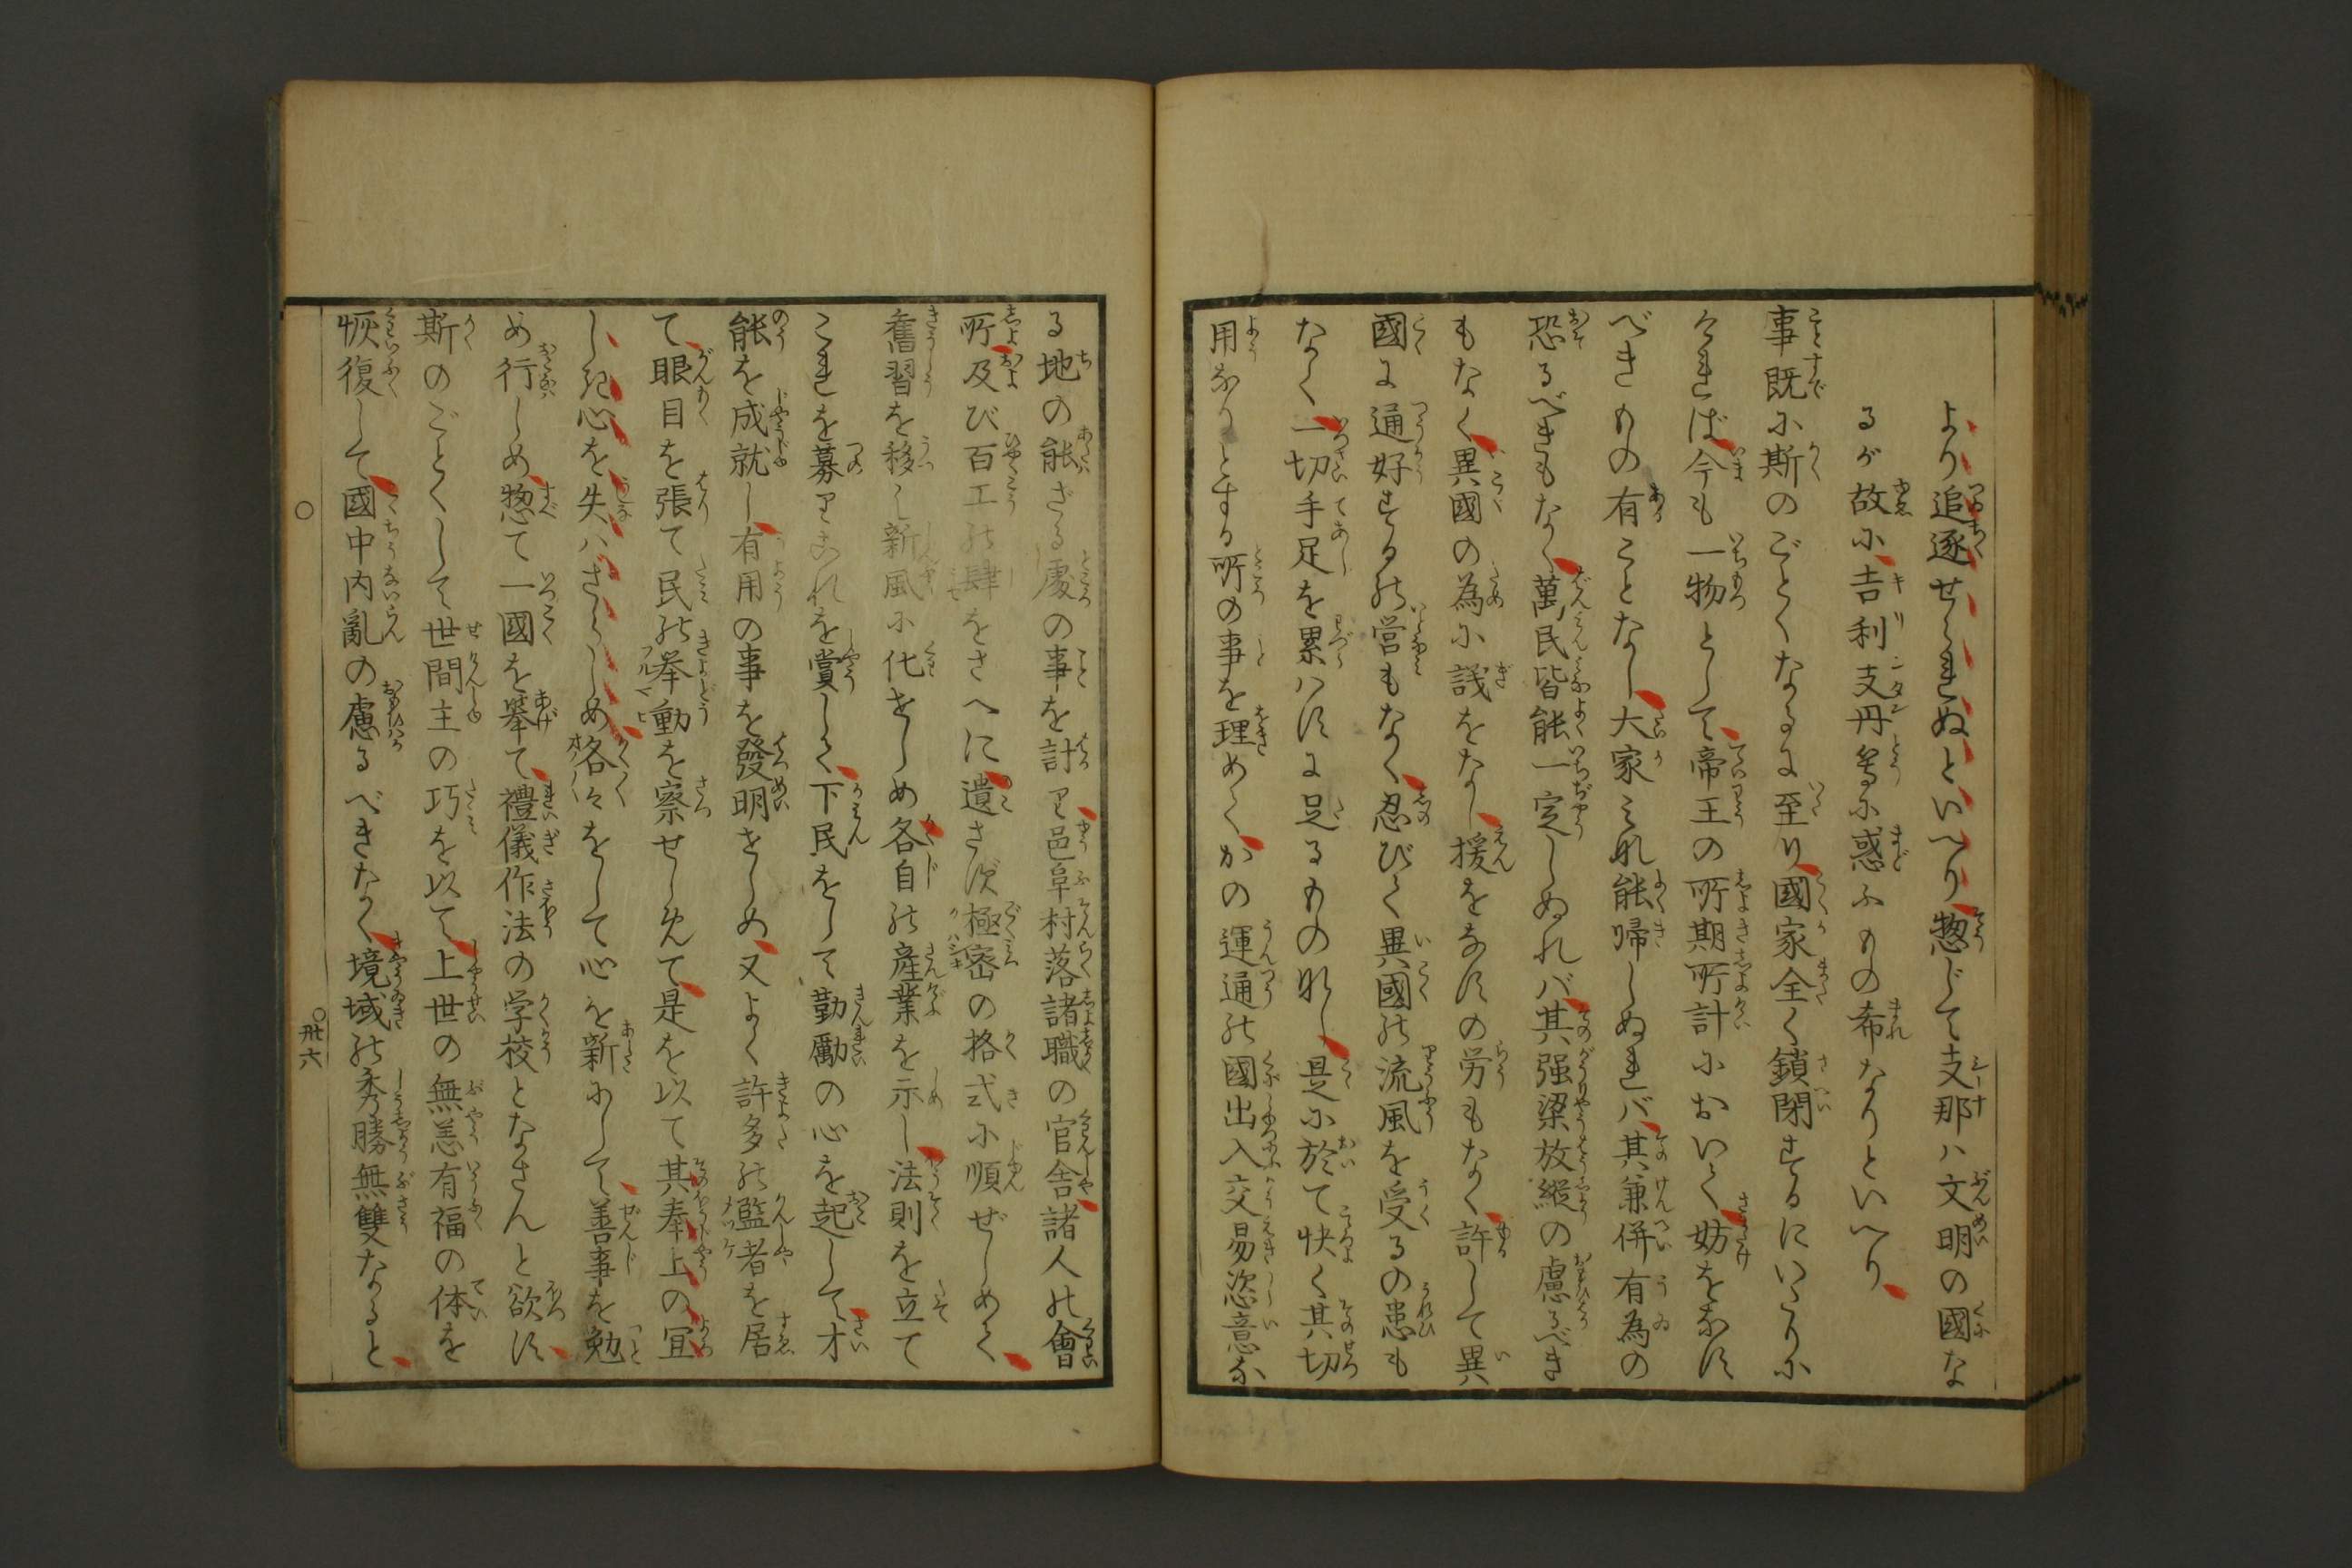 より追逐せられぬといへり惣じて支那ハ文明の國な
るが故に吉利支丹等に惑ふもの希なりといへり
事既に斯のごとくなるに至り國家全く鎖閉するにいたりに
ければ今も一物として帝王の所期所計において妨をなす
べきもの有ことなし大家みな能帰しぬればバ其兼併有為の
恐るべきもなく萬民皆能一定しぬれバ其强梁放縦の慮るべき
もなく異國の為に議をなし援をなすの労もなく許して異
國に通好する の営もなく忍びて異國の流風を受るの患も
なく一切手足を累ハすに足るもの なし是に於て快く其切
用なりとする所の事を理めてかの運通の國出入交易恣意な
る地の能ざる處の事を計り邑阜村落諸職の官舎諸人の會
所及び百工の肆をさへに遺さず極密の格式に順ぜしめて
舊習を移し新風に化せしめ各自の産業を示し法則を立て
これを募りこれを賞して下民をして勤勵の心を起して才
能を成就し有用の事を發明せしめ又よく許多の監者を居
て眼目を張て民の挙動を察せしめて是を以て其奉上の冝
しき心を失ハざらしめ格々をして心を新にして善事を勉
め行しめ惣て一國を挙て禮儀作法の学校となさんと欲す
斯のごとくして世間主の巧を以て上世の無恙有福の体を
恢復して國中内亂の慮るべきなく境域の秀勝無雙なると
〇 〇卅六